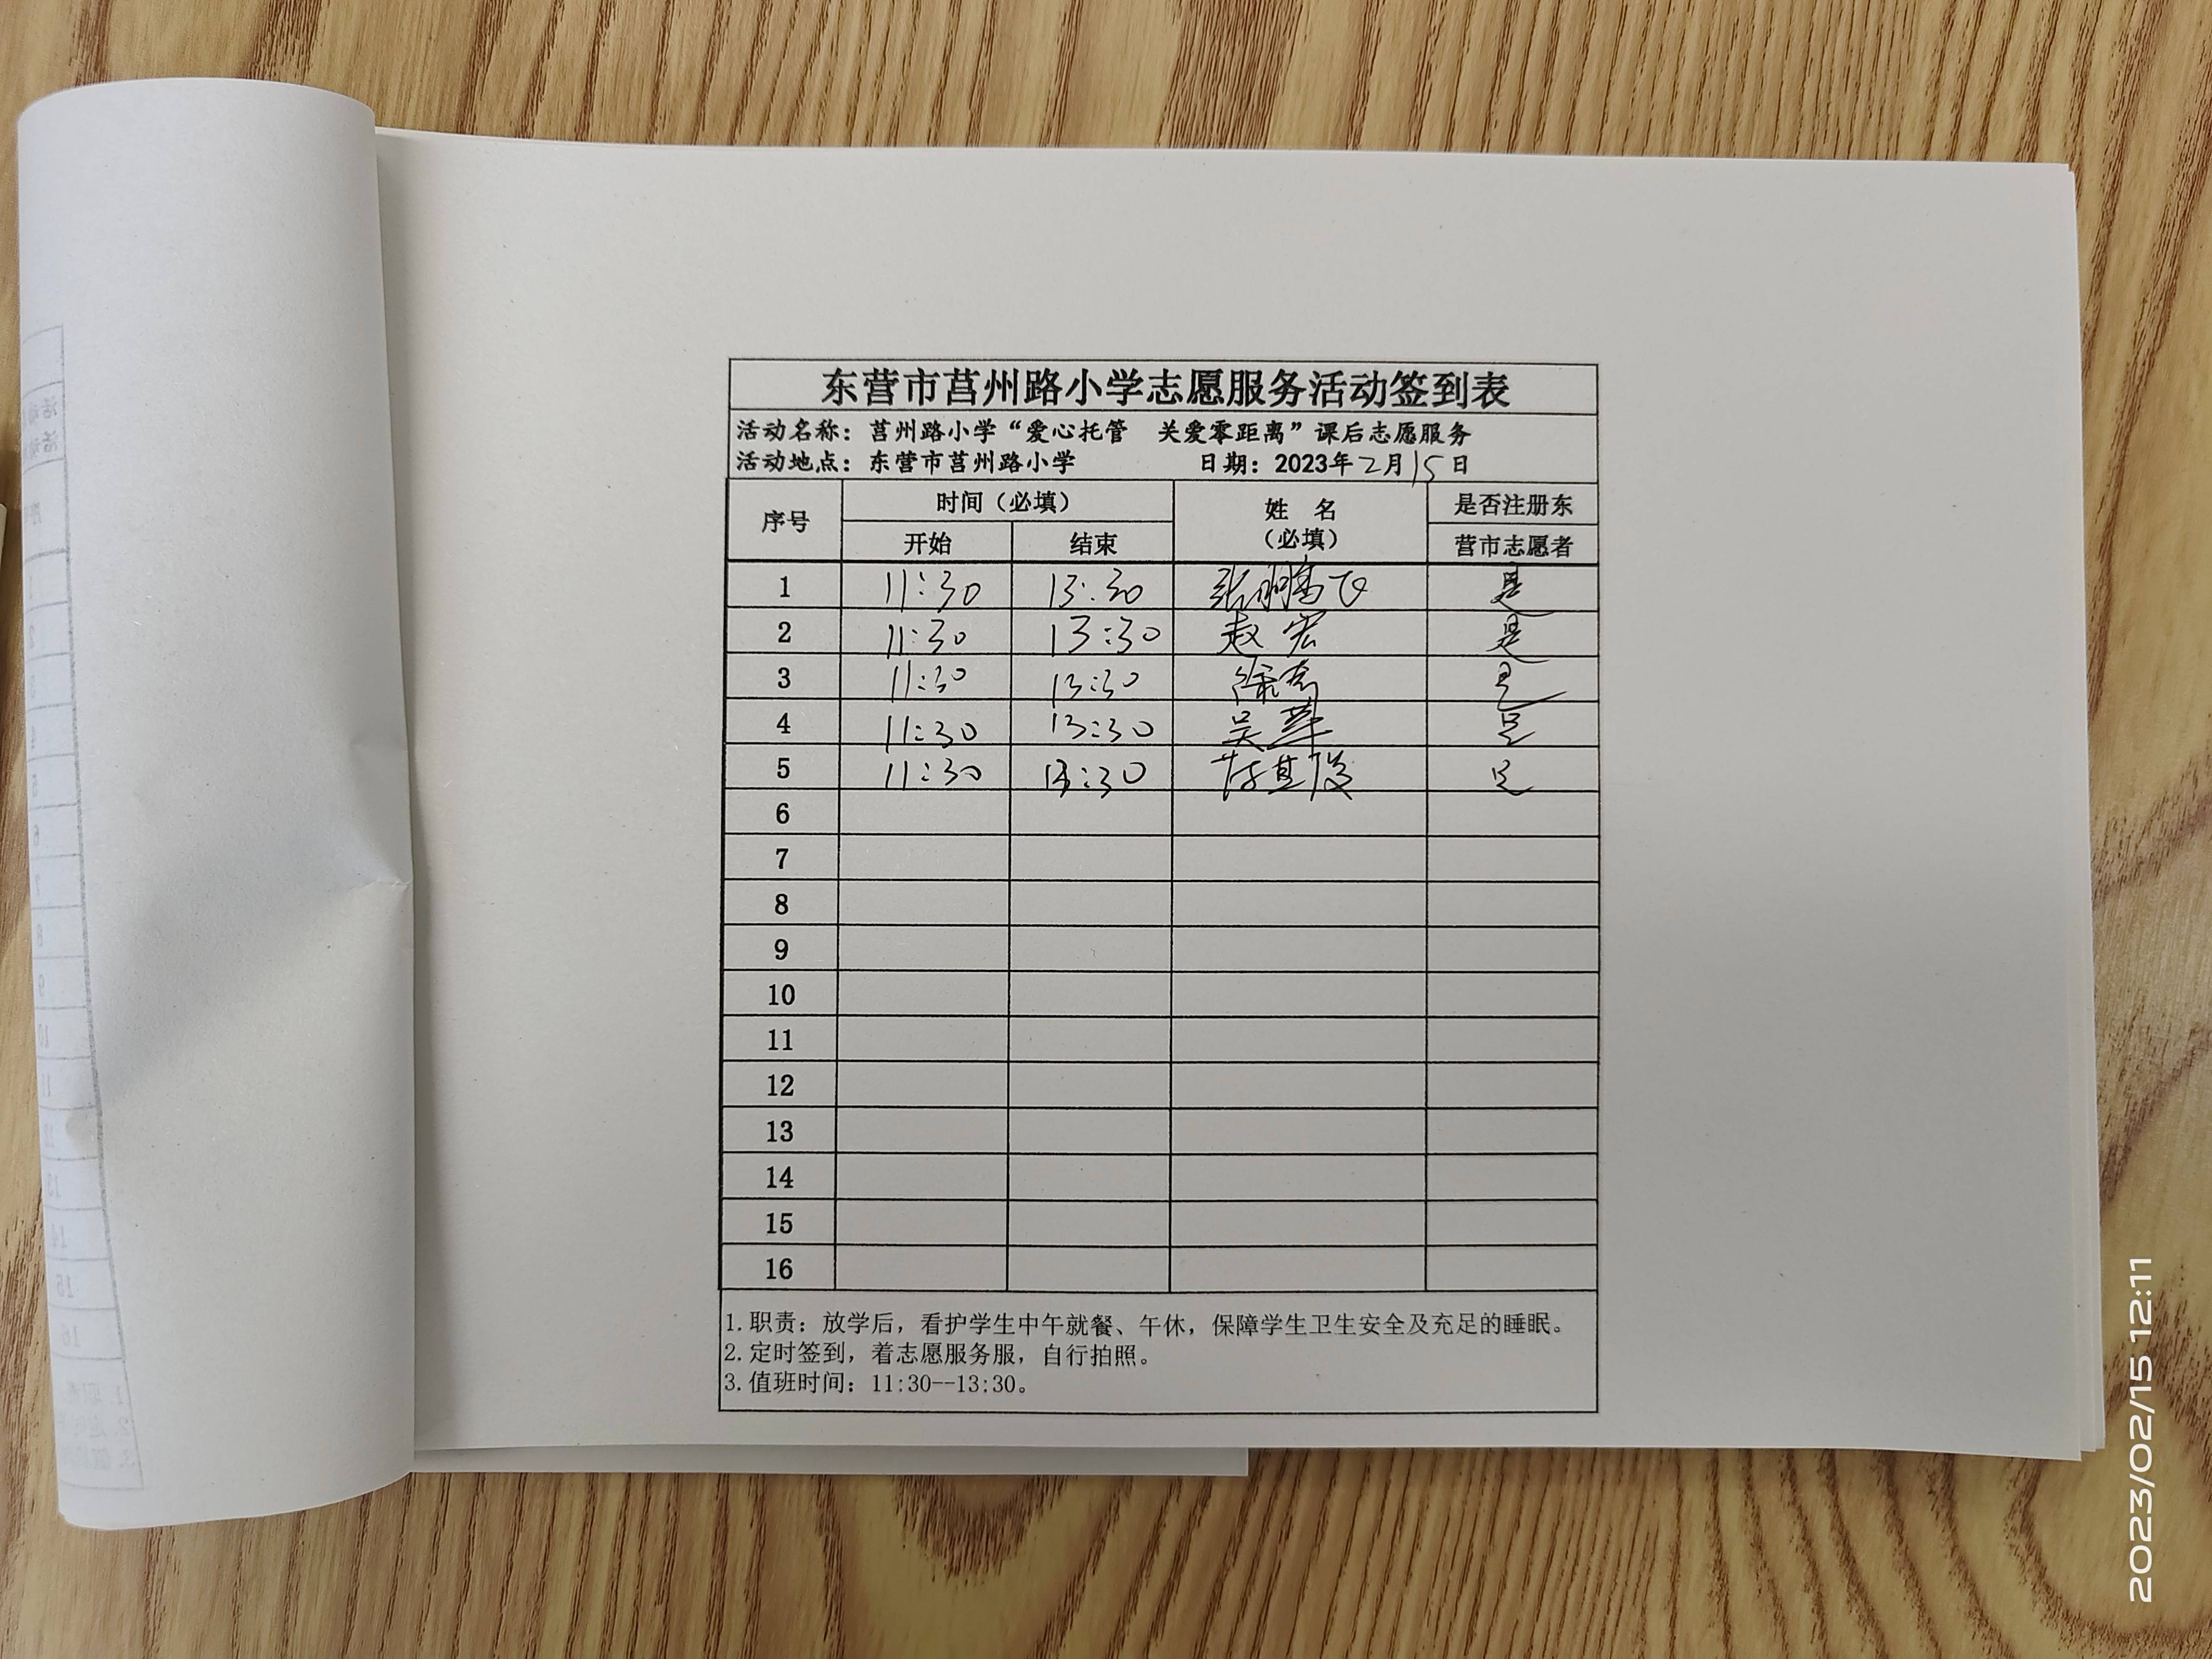 东营市莒州路小学志愿服务活动签到表
活动名称：莒州路小学“爱心托管 关爱零距离”课后志愿服务
活动地点：东营市莒州路小学 日期：2023年2月15日
序号 时间（必填） 姓 名（必填） 是否注册东营市志愿者
开始 结束
1 11:30 13:30 张鹏飞 是
2 11:30 13:30 赵宏 是
3 11:30 13:30 徐 是
4 11:30 13:30 吴萍 是
5 11:30 13:30 是
6
7
8
9
10
11
12
13
14
15
16
1.职责：放学后，看护学生中午就餐、午休，保障学生卫生安全及充足的睡眠。
2.定时签到，着志愿服务服，自行拍照。
3.值班时间：11:30--13:30。
2023/02/15 12:11